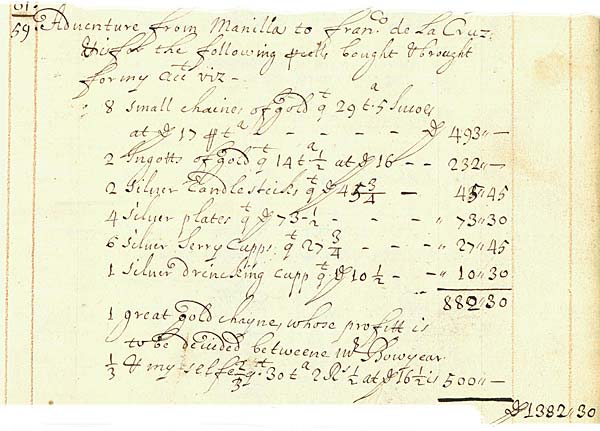 61
59 Adventure from Manilla to Franco. de La Cruz
& is for the following pcells bought & brought
for my acct viz –
8 Small chaines of gold qt 29 ta. 5
at 17 p ta – – – – – 493 „ —
2 Ingotts of gold qt 14 ta ½ at 16 – – 232 „ —
2 Silver Candlesticks qt 45 ¾ — 45 „ 45
4 Silver plates qt 73 ½ – – – „ 73 „ 30
6 Silver Serry Cupps qt 27 ¾ – – – „ 27 „ 45
1 Silver drincking Cupp qt 10 ½ – – „ 10 „ 30
882 „ 30
1 great gold chayne, whose profitt is
to be devided betweene Mr Bowyear
⅓ & my selfe ⅔ qt. 30 ta 2 Rs ½ at 16 ½ is 500 „ —
1382 „ 30